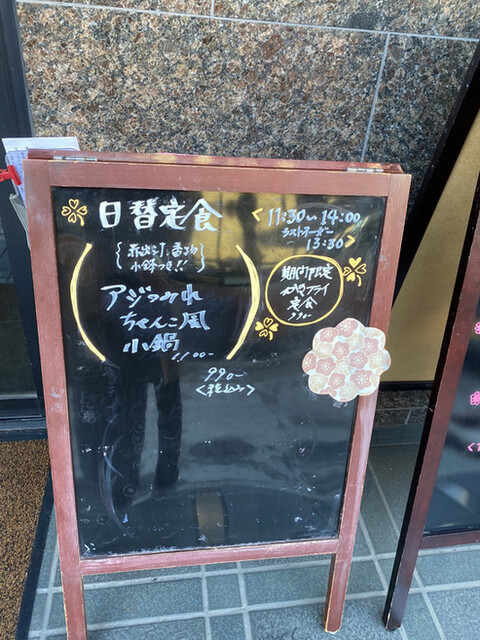 日替定食
<11:30〜14:00
ラストオーダー
13:30>
{赤出汁、香物
小鉢つき!!}
アジつみれ
ちゃんこ風
小鍋
1,100-
期間限定
カキフライ
定食
990-
990-
<税込み>